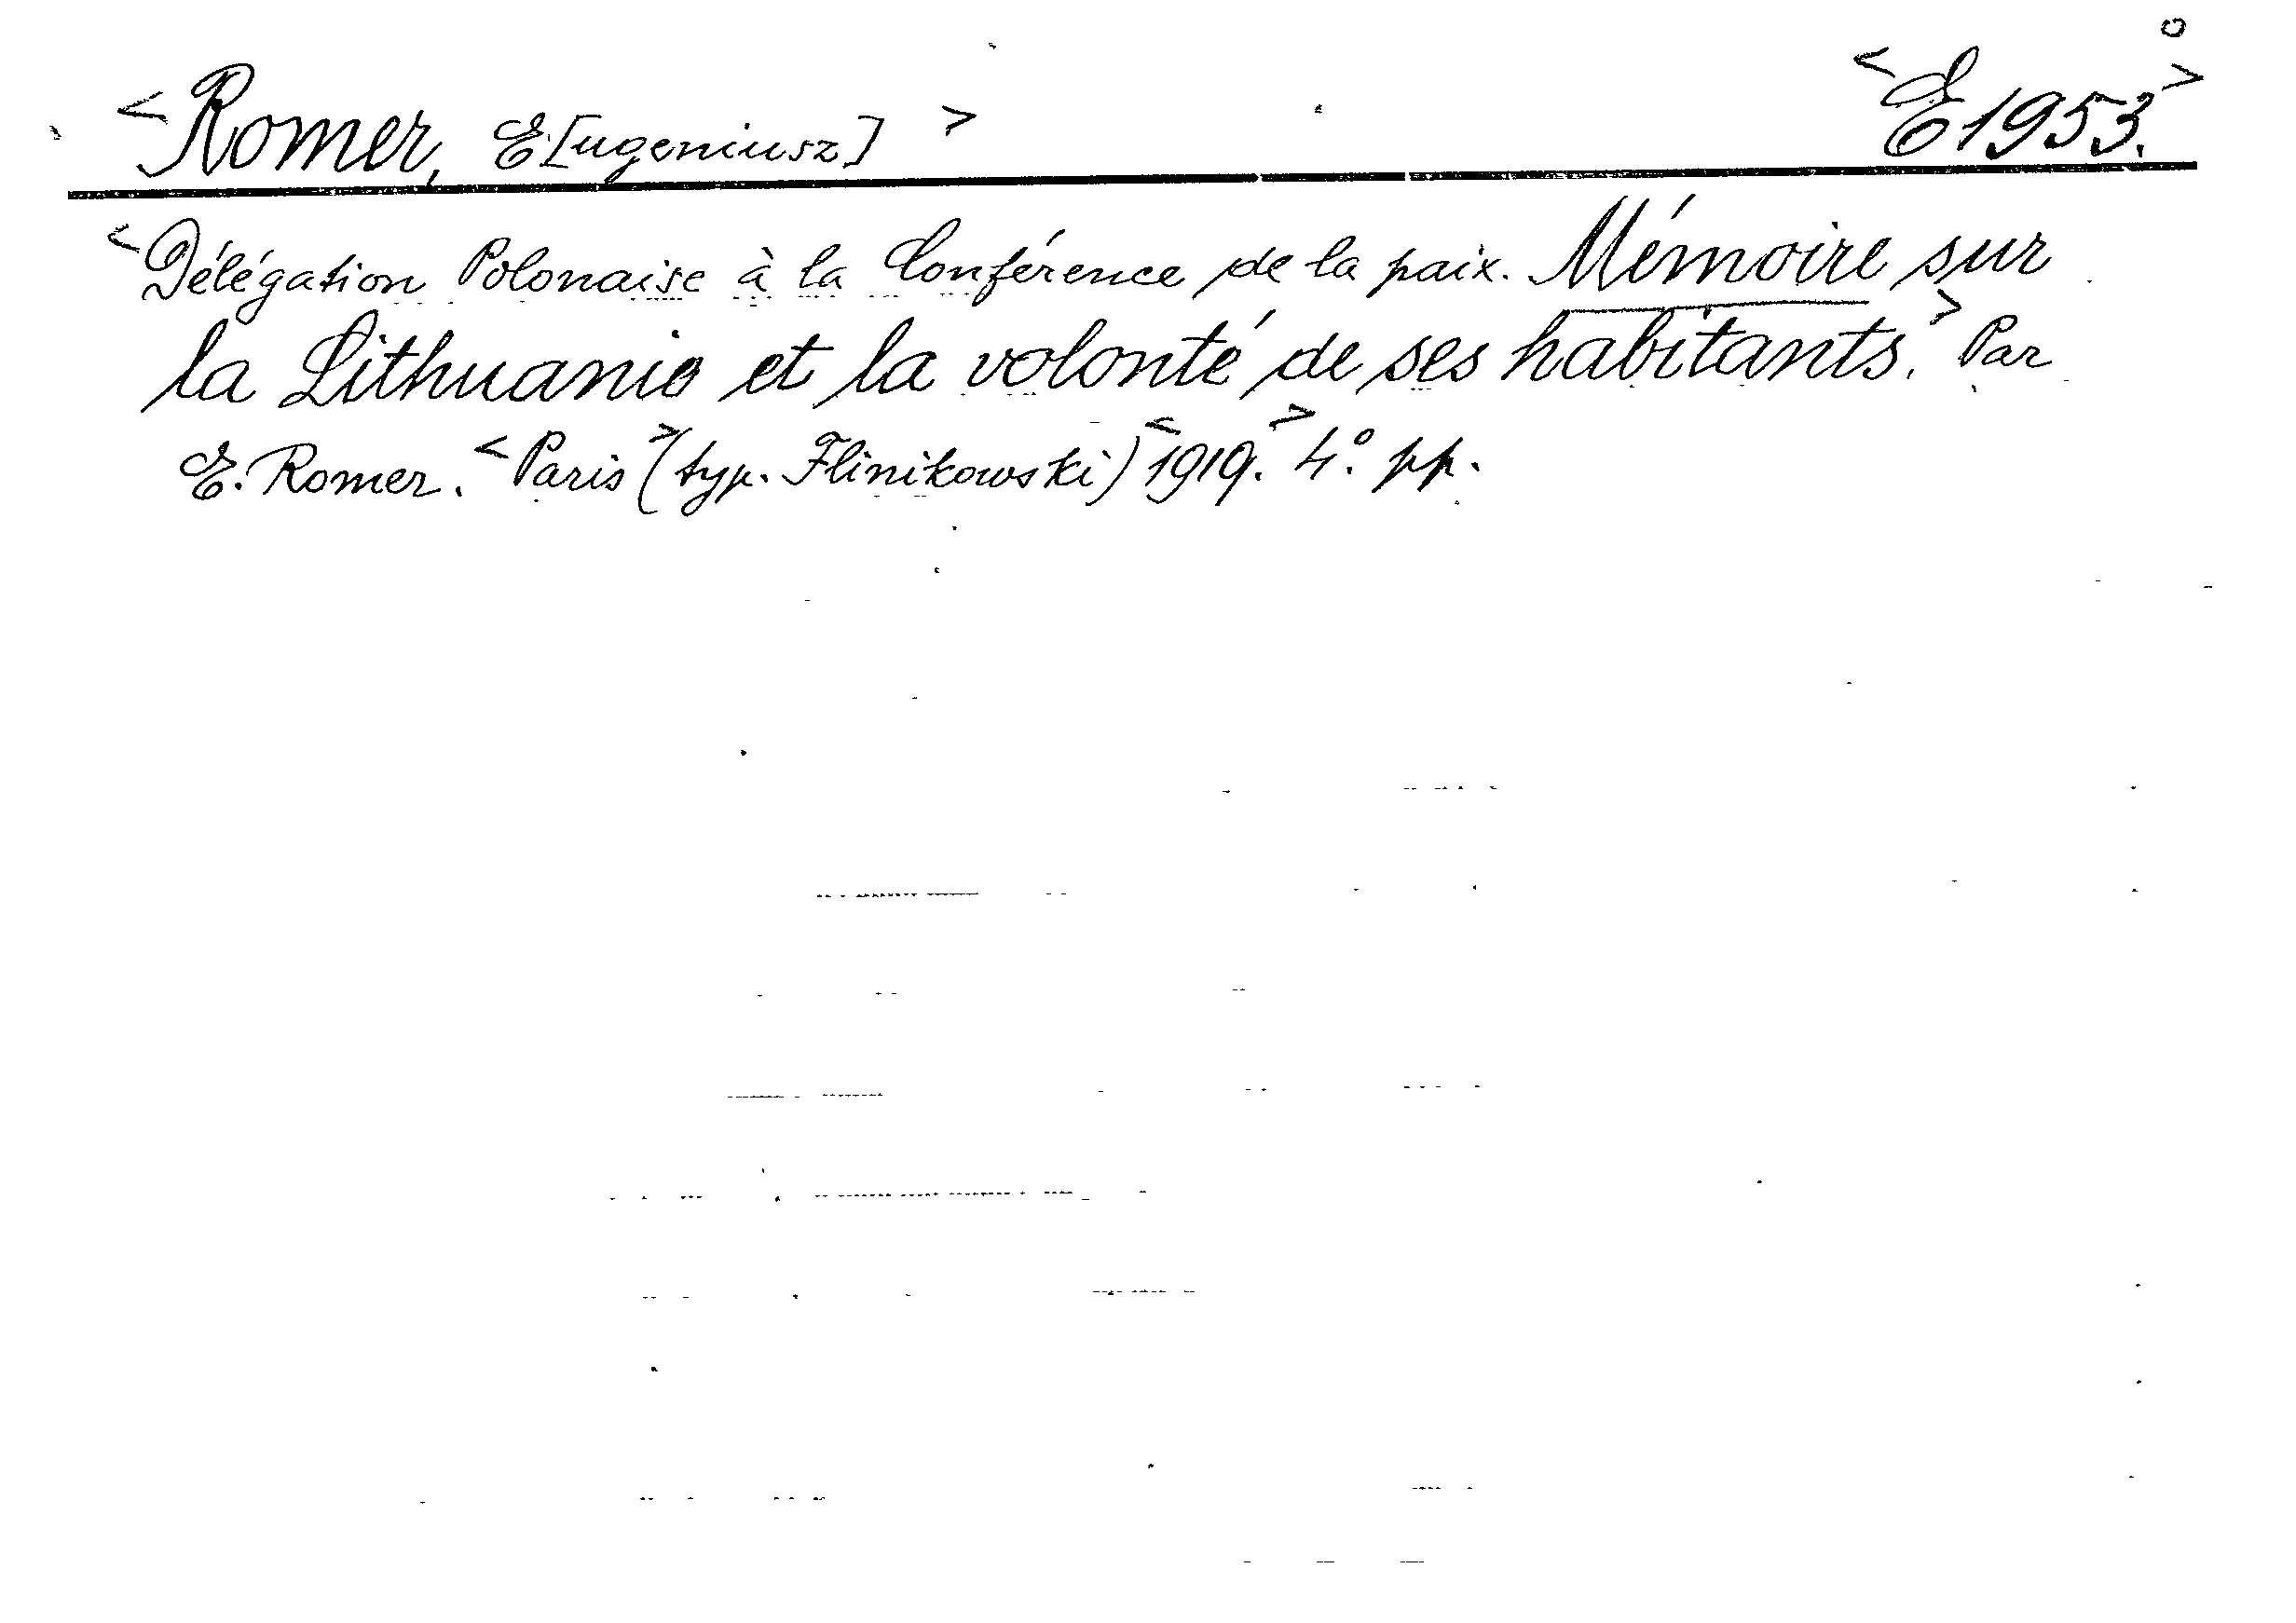 <Romer, E[ugeniusz]> <E1953.>
<Délégation Polonaise à la Conférence de la paix. Mémoire sur
la Lithuanie et la volonté de ses habitants.> Par
E. Romer. <Paris> (typ. Flinikowski) <1919.> 4.° pp.